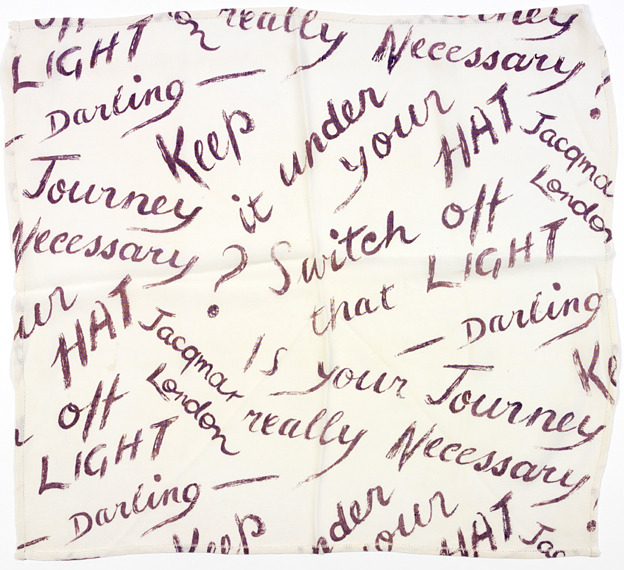 off
LIGHT
really
Journey
Necessary ?
Darling —
Keep
it under
your
HAT
Jacqmar
London
Journey
Necessary ?
Switch off
that LIGHT
— Darling
HAT
Jacqmar
London
Is your Journey
really Necessary
off
LIGHT
— Darling —
Keep
your
HAT